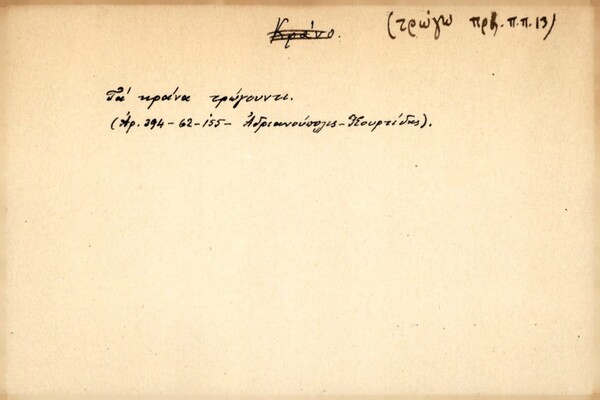 Κράνο.
(τρώγω πρβ. π.π. 13)
Τά κράνα τρώγουντι.
(Ἀρ. 394-62-155- Ἀδριανούπολις-Κουρτίδης).